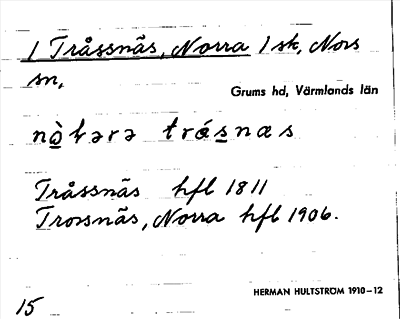 / Tråssnäs, Norra / sk, Nors
sn,
Grums hd, Värmlands län
nòrərə trásnæs
Tråssnäs hfl 1811
Trossnäs, Norra hfl 1906.
HERMAN HULTSTRÖM 1910–12
15